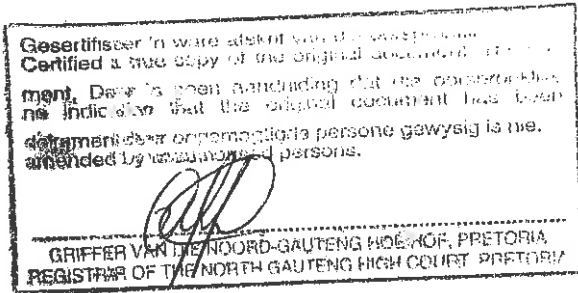 Gesertifiseer 'n ware afskrif van die
Certified a true copy of the original document.
ment, Daar is geen aanduiding dat die oorspronklike
no indication that the original document has been
deur ongemagtigde persone gewysig is nie.
amended by unauthorised persons.
GRIFFIER VAN DIE NOORD-GAUTENG HOË HOF, PRETORIA
REGISTRAR OF THE NORTH GAUTENG HIGH COURT PRETORIA